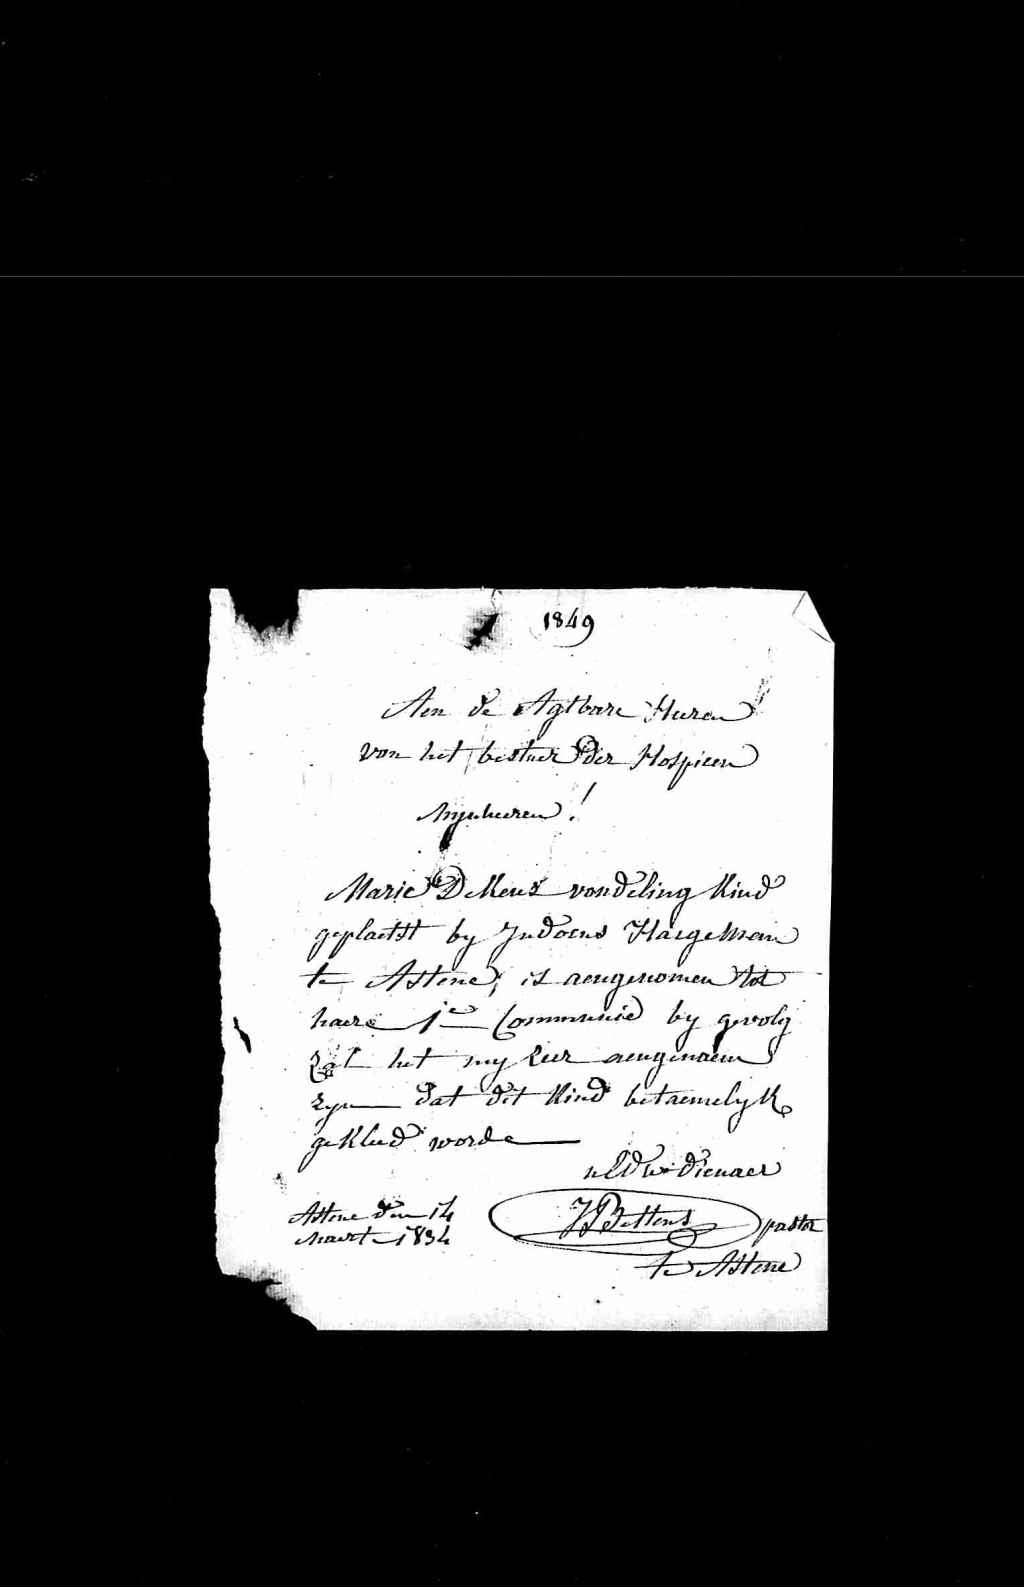 1849
Aen de Agtbare Heeren
van het bestuer der Hospicen
Mynheeren!
Marie DeKeus vondeling kind
geplaetst by Judocus Haegeman
te Astene, is aengenomen tot
haere 1e Communie by gevolg
zal het my zeer aengenaem
zyn dat dit kind betaemelyk
gekleed worde
uEdw dienaer
Astene den 14
Maert 1834
JBettens pastor
te Astene